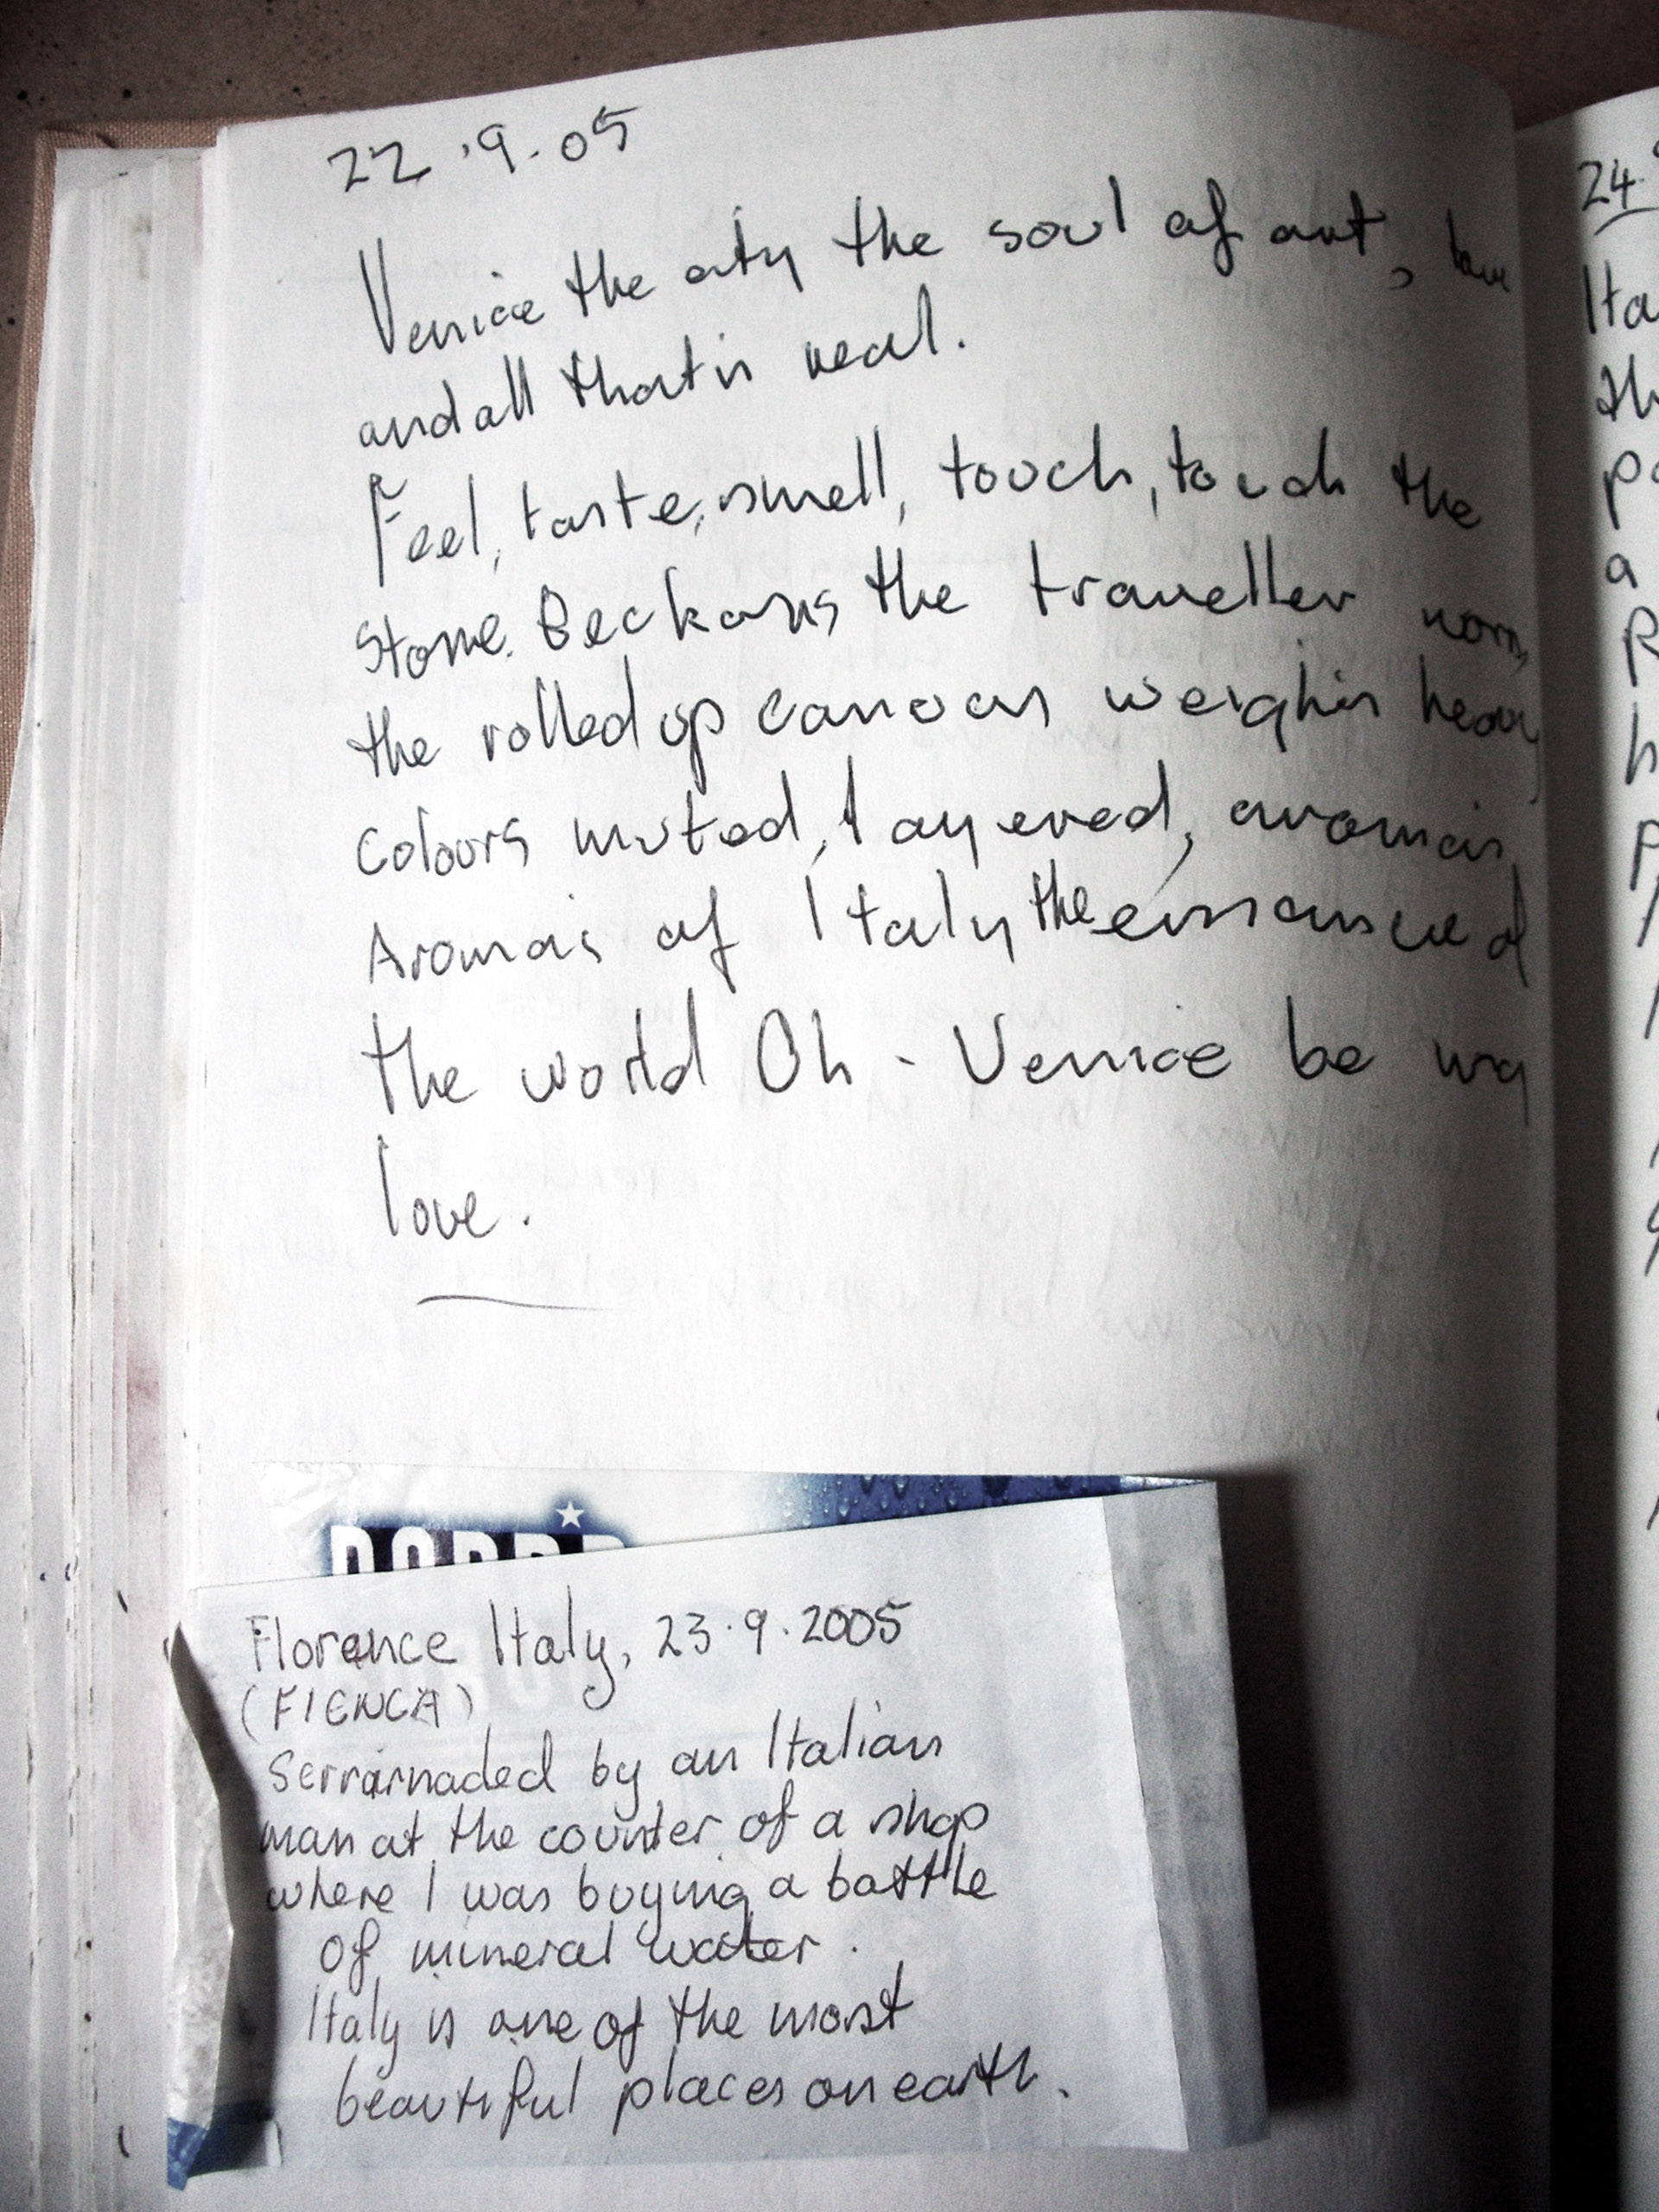 22.9.05
Venice the city the soul of art, love
and all that is real.
Feel, taste, smell, touch, touch the
stone. Beckons the traveller worn,
the rolled up canvas weighs heavy
colours muted, layered, aromas,
Aromas of Italy the essance of
the world Oh - Venice be my
love.
Florence Italy, 23.9.2005
(FIENCA)
Serrarnaded by an Italian
man at the counter of a shop
where I was buying a bottle
of mineral water.
Italy is one of the most
beautiful places on earth.
24.
Ita
th
a